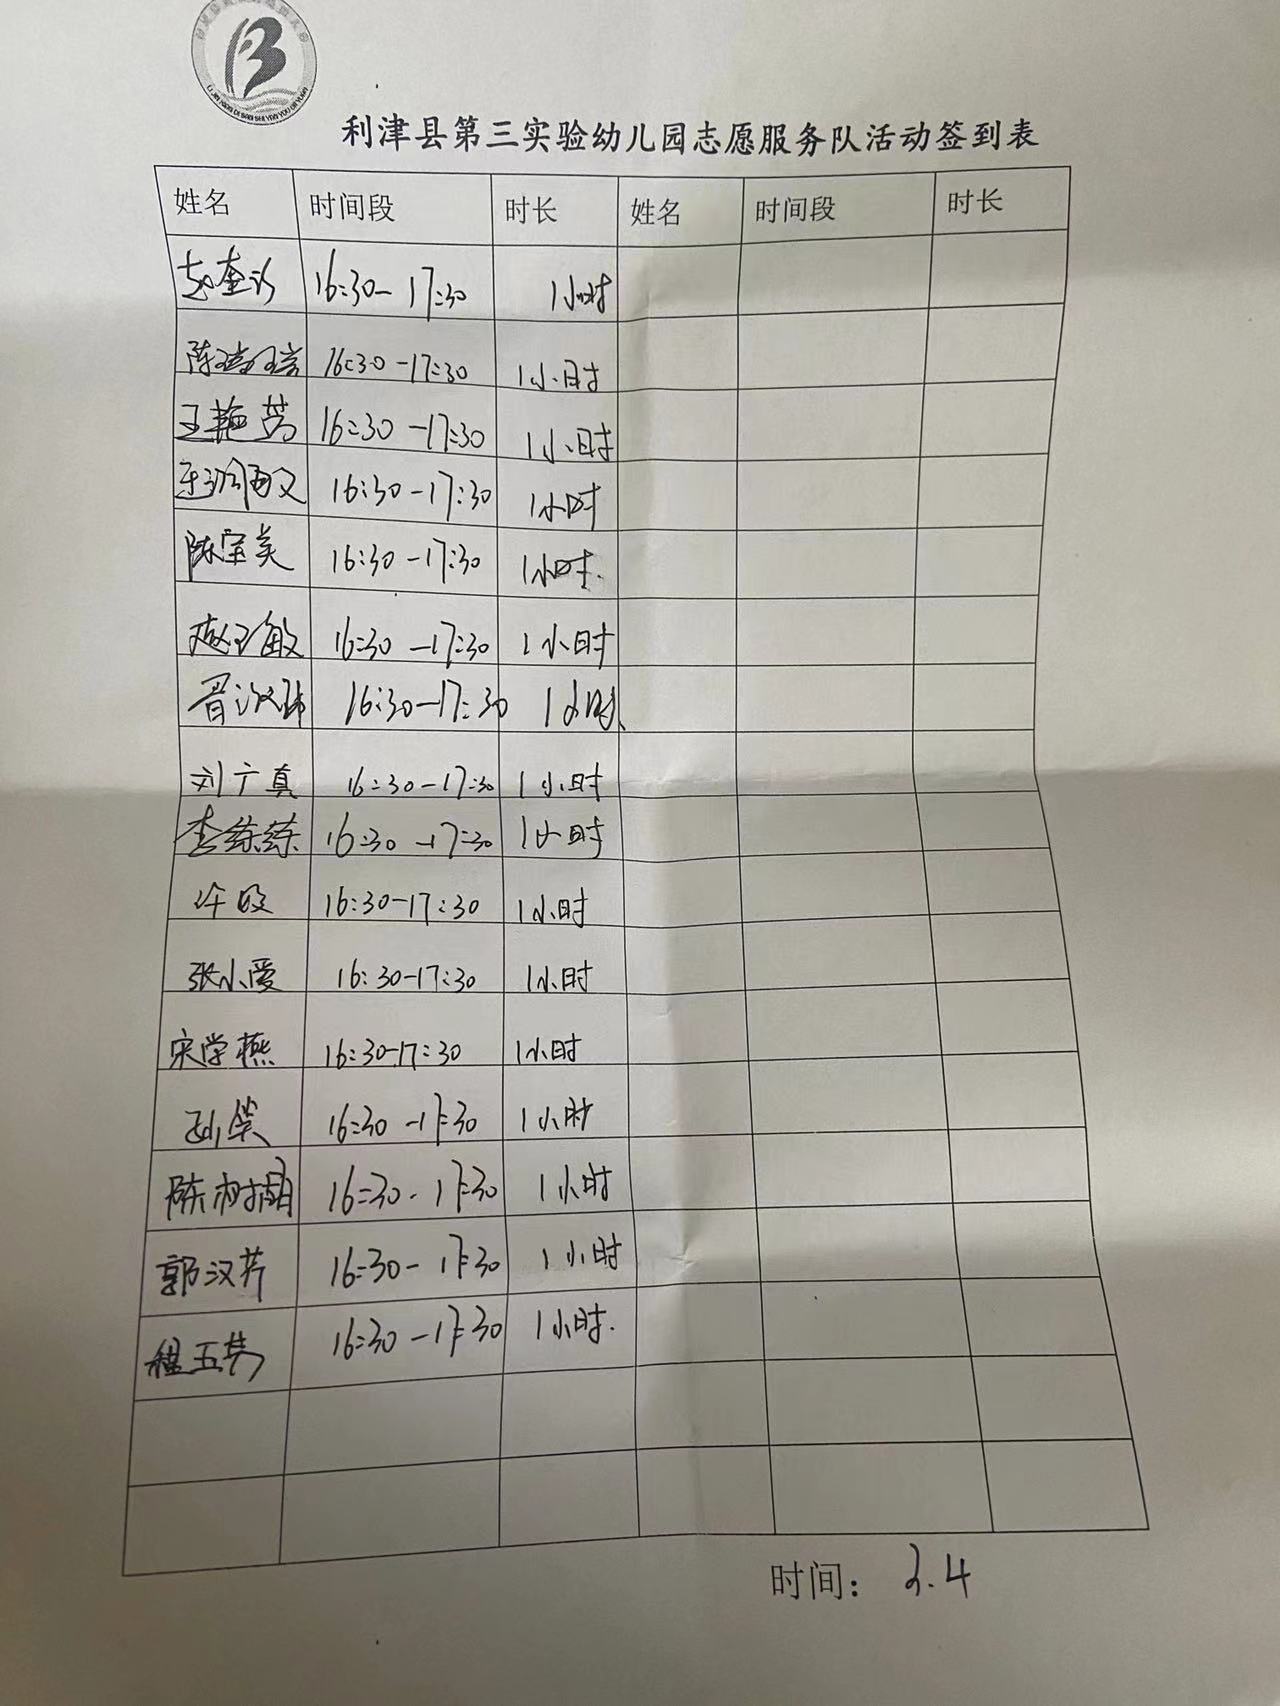 利津县第三实验幼儿园志愿服务队活动签到表
姓名 时间段 时长 姓名 时间段 时长
16:30-17:30 1小时
陈瑞瑶 16:30-17:30 1小时
王艳芳 16:30-17:30 1小时
16:30-17:30 1小时
陈宝美 16:30-17:30 1小时.
赵玉敏 16:30-17:30 1小时
16:30-17:30 1小时
刘广真 16:30-17:30 1小时
李练练 16:30-17:30 1小时
16:30-17:30 1小时
张小爱 16:30-17:30 1小时
宋学燕 16:30-17:30 1小时
16:30-17:30 1小时
16:30-17:30 1小时
郭汉芹 16:30-17:30 1小时
程玉芳 16:30-17:30 1小时.
时间： 3.4